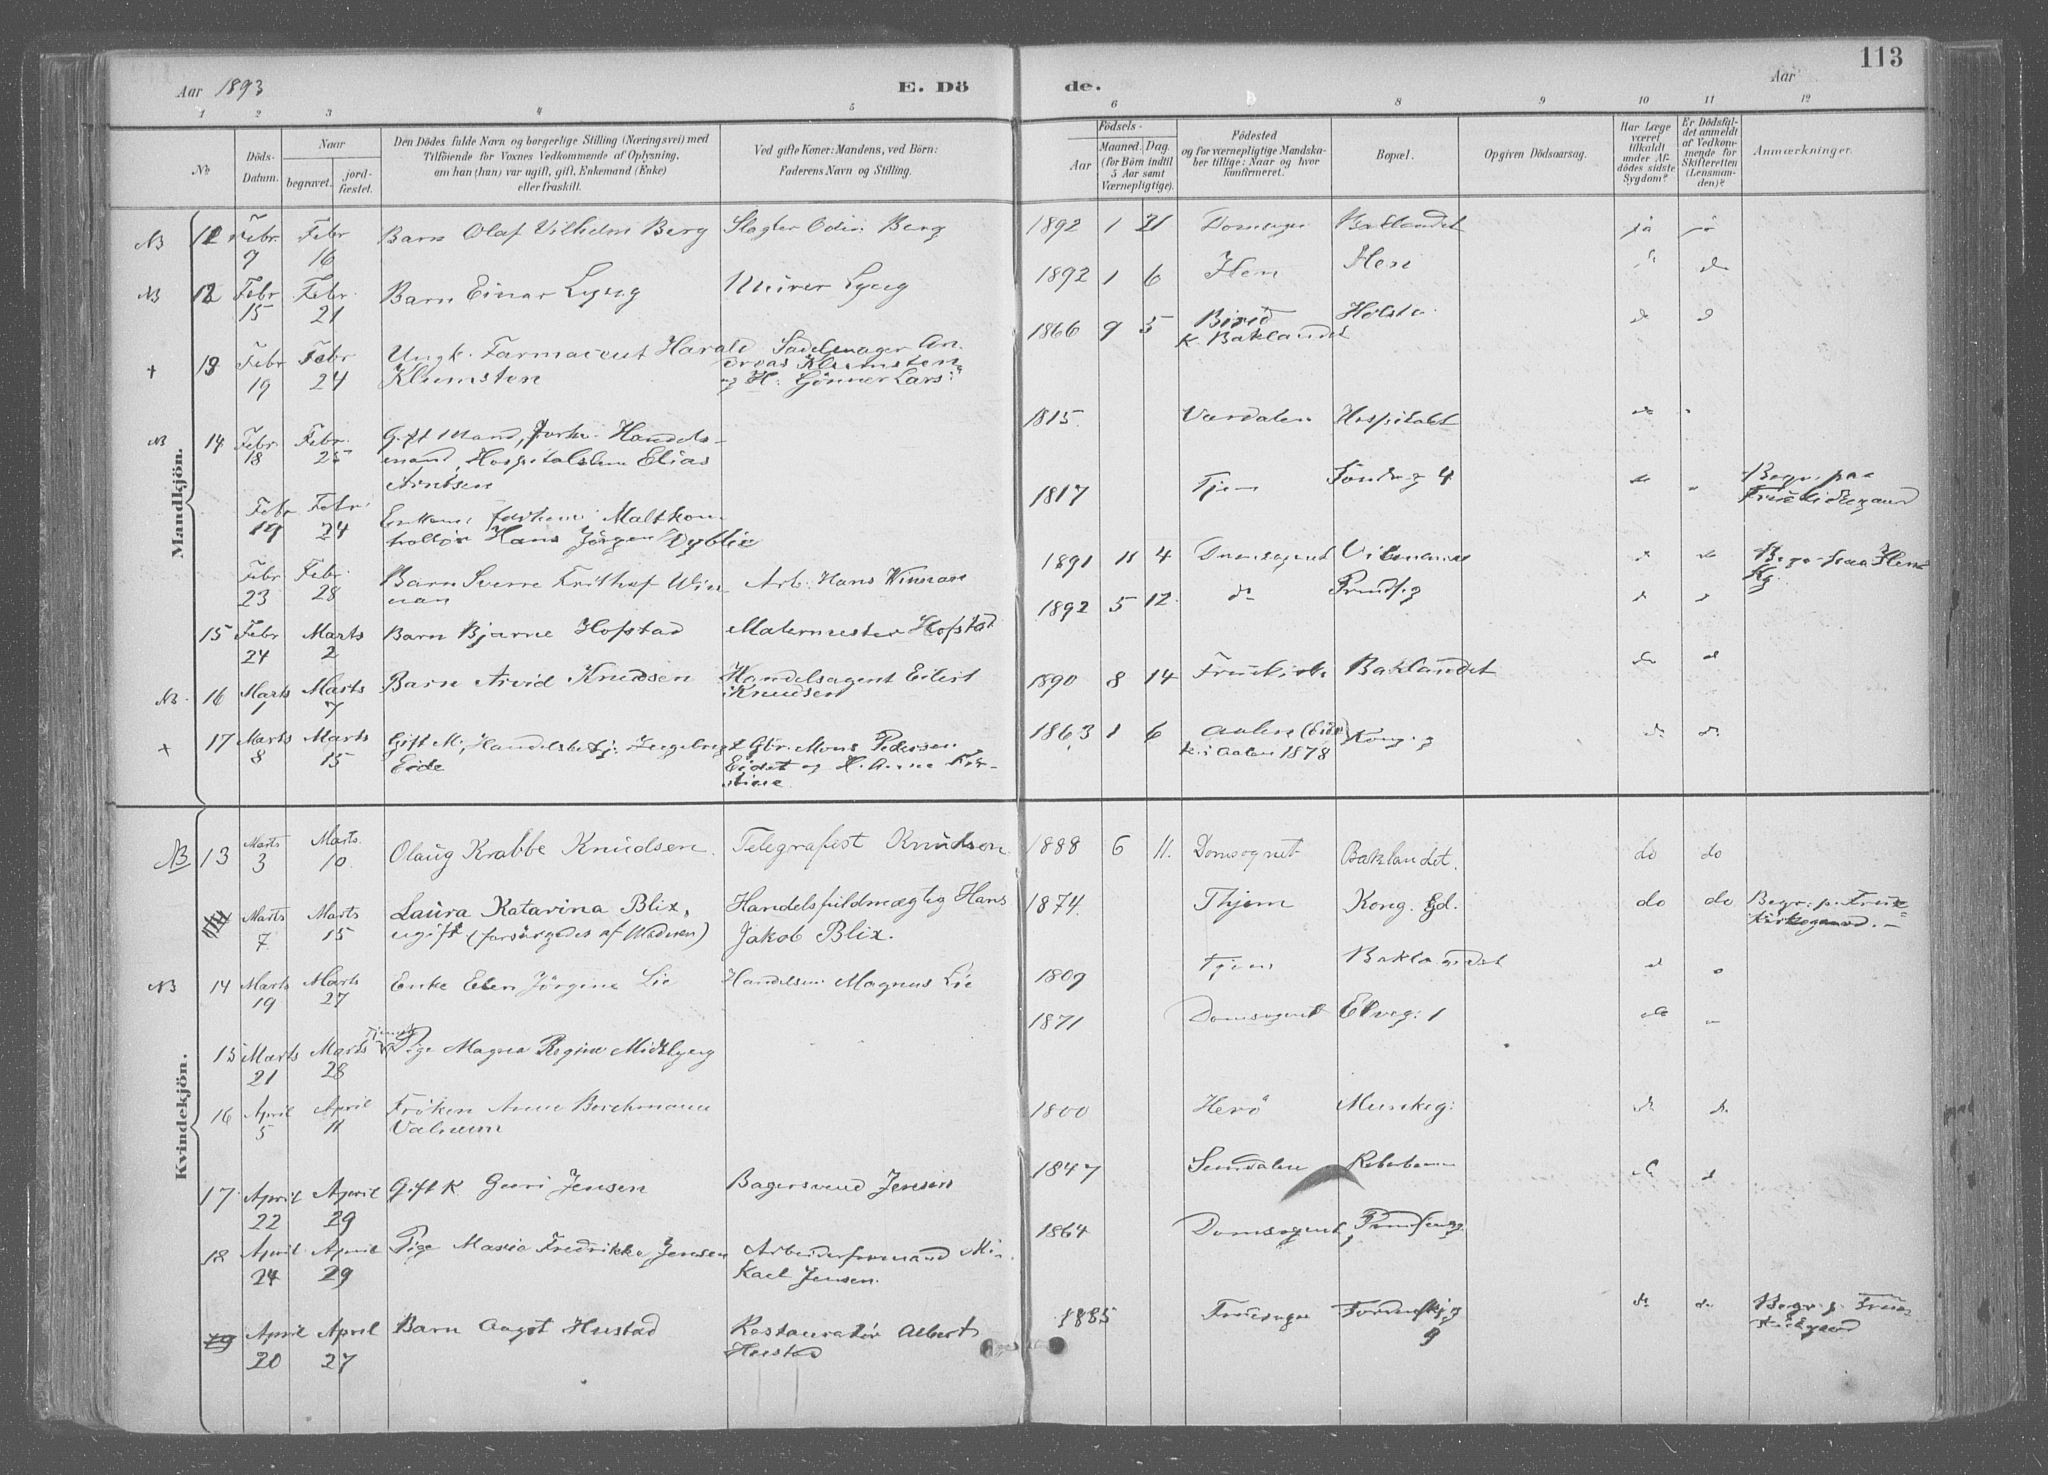 Aar 1893
E. Dö
de.
Aar
113
1 2 3 4 5 6 8 9 10 11 12
No
Döds-Datum.
Naar
begravet.
jord-fæstet.
Den Dödes fulde Navn og borgerlige Stilling (Næringsvei) med
Tilföiende for Voxnes Vedkommende af Oplysning,
om han (hun) var ugift, gift, Enkemand (Enke)
eller fraskilt.
Ved gifte Koner: Mandens, ved Börn:
Faderens Navn og Stilling.
Födsels-
Aar
Maaned. Dag.
(for Börn indtil
5 Aar samt
Værnepligtige).
Födested
og for værnepligtige Mandska-
ber tillige: Naar og hvor
konfirmeret.
Bopæl.
Opgiven Dödsaarsag.
Har Læge
været
tilkaldt
under Af-
dödes sidste
Sygdom?
Er Dödsfal-
det anmeldt
af Vedkom-
mende for
Skifteretten
(Lensman-
den)?
Anmærkninger.
Mandkjön.
NB 11 Febr 9 Febr 16 Barn Olaf Vilhelm Berg Slagter Odin Berg 1892 1 21 Domsogn Baklandet ja ja
NB 12 Febr 15 Febr. 21 Barn Einar Lyng Murer Lyng 1892 1 6 Ilen Ilen do
+ 13 Febr 19 Febr 24 Ungk. Farmaceut Harald
Klumsten
Sadelmager An-
dreas Klumsten
og H. Gönner Lars:
1866 9 5
K. Baklandet
NB 14 Febr. 18 Febr. 25 Gift Mand, forhv. Handels-
mand, Hospitalslem Elias
Arntsen
1815. Værdalen Hospitalet do
Febr 19 Febr. 24 Enkem. forhenv. Maltkon-
trollör Hans Jörgen Dyblie
1817 Tjem Söndreg 4 do
Begr. paa
Frue Kirkegaard
Febr 23 Febr. 28 Barn Sverre Frithof Win-
nan
Arb. Hans Winnan
1891 11 4 Domsognet do
Begr. fraa Ilens
Kg.
15 Febr 24 Marts 2 Barn Bjarne Hofstad Malermester Hofstad 1892 5 12. do
NB. 16 Marts 1 Marts 7 Barn Arvid Knudsen Handelsagent Eilert
Knudsen
1890 8 14 Baklandet do
+ 17 Marts 8 Marts 15 Gift M., Handelsbetj. Ingebrigt
Eide
Gbr. Mons Pedersen
Eidet og H. Anne Kir-
stine
1863 1 6 Aalen (Eide)
k. i Aalen 1878
Kong. g do. do.
Kvindekjön.
NB 13 Marts 3 Marts 10 Olaug Krabbe Knudsen. Telegrafist Knudson 1888 6 11. Domsognet Baklandet. do do
Marts 7 Marts 15 Laura Katarina Blix,
ugift (forsörgedes af Moderen)
Handelsfuldmægtig Hans
Jakob Blix.
1874 Thjem Kong. Gd. do do Begr. p. Frue
kirkegaard.
NB 14 Marts 19 Marts 27 Enke Elen Jörgine Lie Handelsm. Magnus Lie 1809 Tjem Baklandet
15 Marts 21 Marts 28 Tjeneste Pige Magna Regine Midtlyng 1871 Domsognet Elveg: 1 do
16 April 5 April 11 Fröken Anne Borchmann
Valnum
1800 Herö Munkeg: do do
17 April 22 April 29 Gift K Guri Jensen Bagersvend Jensen 1847 Sundalen do
18 April 24 April 29 Pige Marie Fredrikke Jensen Arbeiderformand Mi-
kael Jensen.
1864 Domsognet
19 April 20 April 27 Barn Aagot Hustad Restauratör Albert
Hustad
1885 9 do do Begr. p. Frue
Kirkegaard